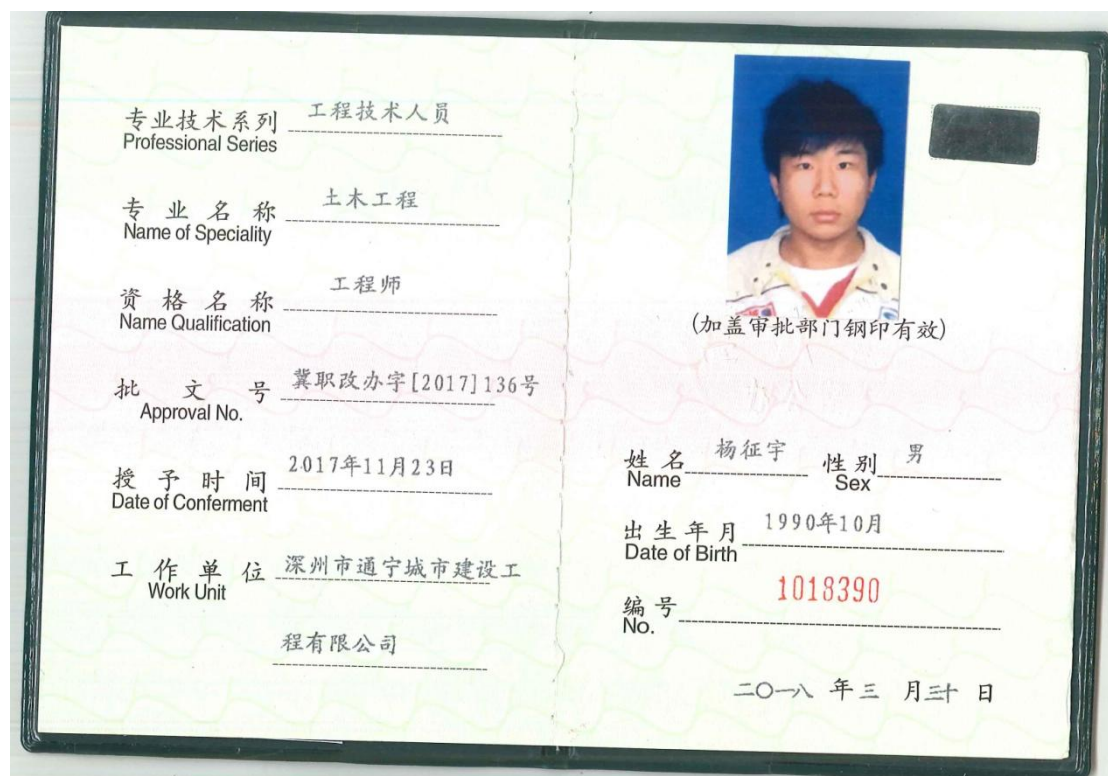 专业技术系列 工程技术人员
Professional Series
专业名称 土木工程
Name of Speciality
资格名称 工程师
Name Qualification
批文号 冀职改办字[2017]136号
Approval No.
授予时间 2017年11月23日
Date of Conferment
工作单位 深州市通宁城市建设工
Work Unit
程有限公司
(加盖审批部门钢印有效)
姓名 杨征宇 性别 男
Name Sex
出生年月 1990年10月
Date of Birth
编号 1018390
No.
二〇一八 年三 月三十 日